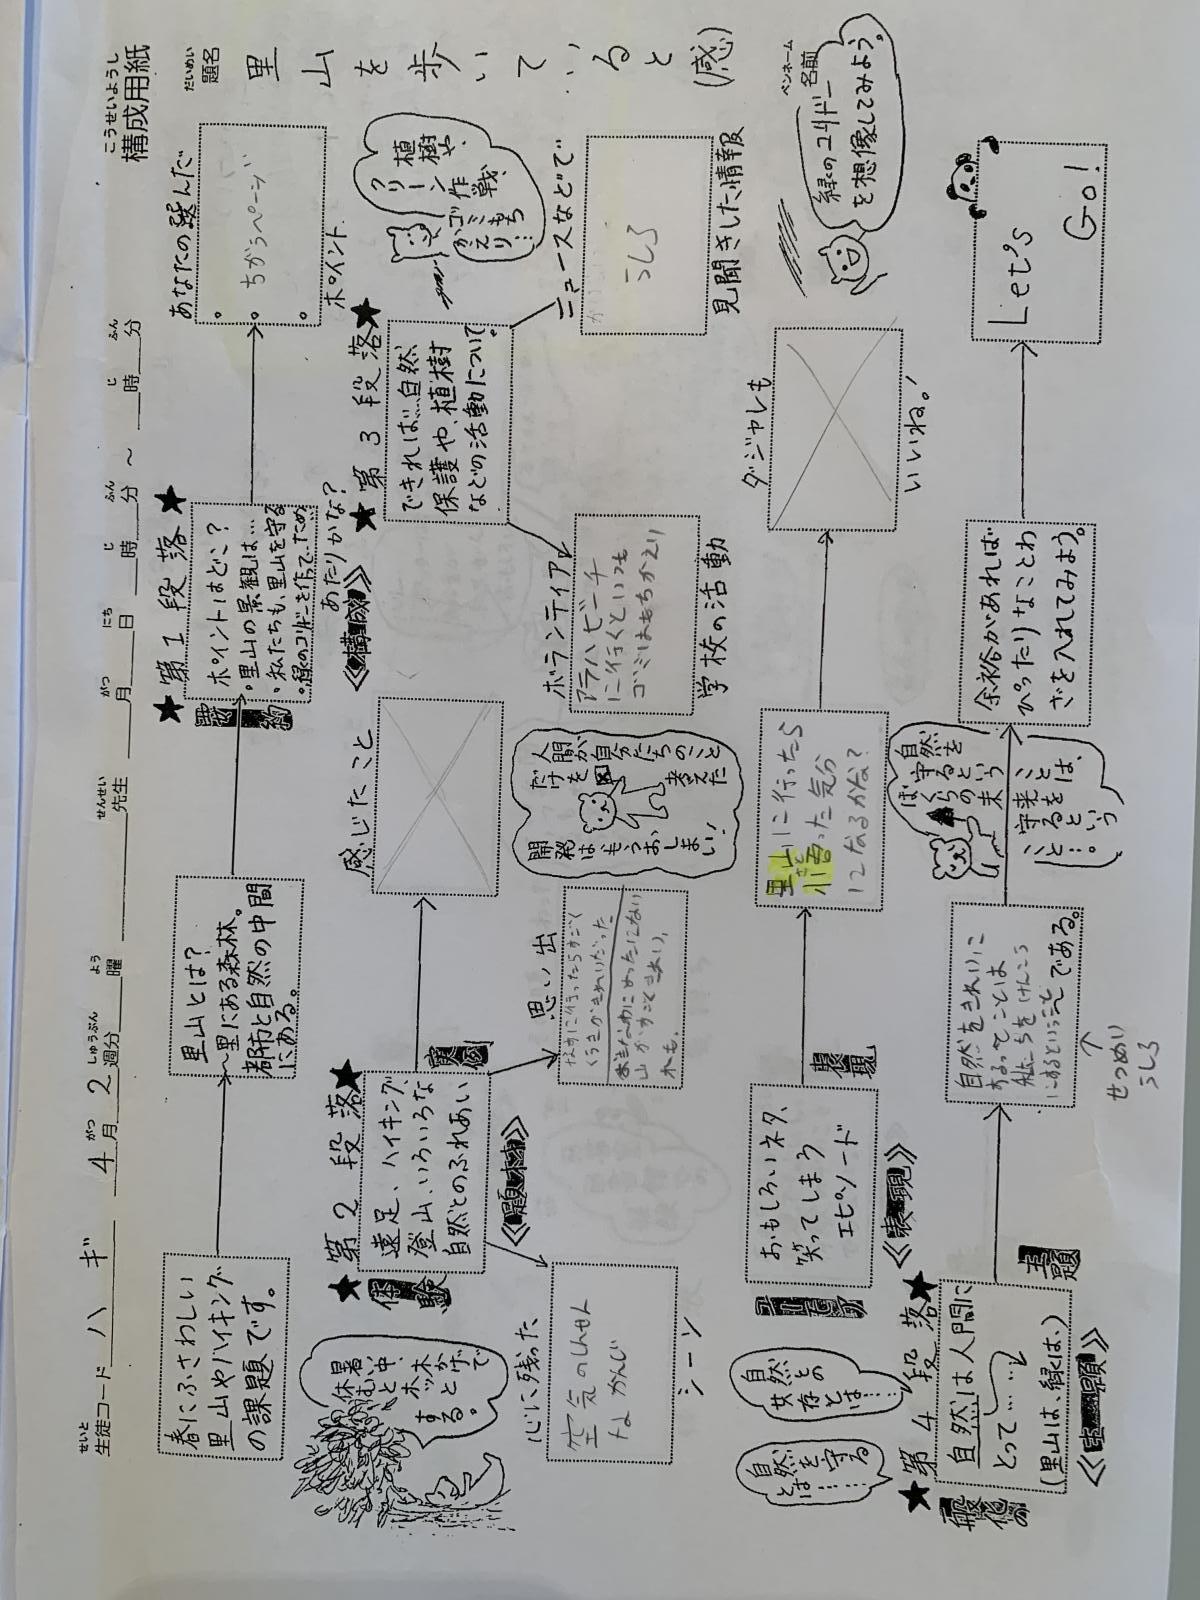 こうせいようし
構成用紙
せいと
生徒コード ハギ
4月 2週分 曜
がつ しゅうぶん よう
せんせい
先生
がつ にち じ ふん じ ふん
月 日 時 分 ～ 時 分
だいめい
題名
里山を歩いていると(感)
ペンネーム
名前
春にふさわしい
里山やハイキング
の課題です。
里山とは？
～里にある森林。
都市と自然の中間
にある。
★第1段落★
要約
ポイントはどこ？
。里山の景観は…
。私たちも、里山を守る
。緑のコリドーを作るため
あたりかな？
あなたの選んだ
ちがうページ
ポイント
★第2段落★
体験
実例
遠足、ハイキング
登山、いろいろな
自然とのふれあい
《題材》
暑い中、
休むと、
ホッと
木かげで
する。
心に残った
空気のしんせん
なかんじ
シーン
思い出
くうきがきれいだった
山がすごくきれい。
木も。
感じたこと
人間が
自分たちのこと
だけを
考えた
開発は
もうおしまい！
《構成》
★第3段落★
できれば、自然
保護や、植樹
などの活動について。
植樹や、
クリーン作戦、
ゴミもち
かえり…
ボランティア
アラハビーチ
に行くといつも
ゴミはもちかえり
学校の活動
ニュースなどで
うしろ
見聞きした情報
おもしろいネタ、
笑ってしまう
エピソード
表現
《表現》
里山に行ったら
さと
小悟った気分
になるかな？
ダジャレも
いいね。！
緑のコリドー
を想像してみよう。
自然との
共存とは……
自然を守る
とは……
★第4段落★
一般化の
主題
自然は人間に
とって……
(里山は、緑は、)
《主題》
自然をきれいに
するってことは
私たちをけんこう
にするということである。
↑
せつめい
うしろ
自然を
守るという
ぼくらの
未来を
守ること
ということは、
…。
余裕があれば
ぴったりなことわ
ざを入れてみよう。
Let's
Go!